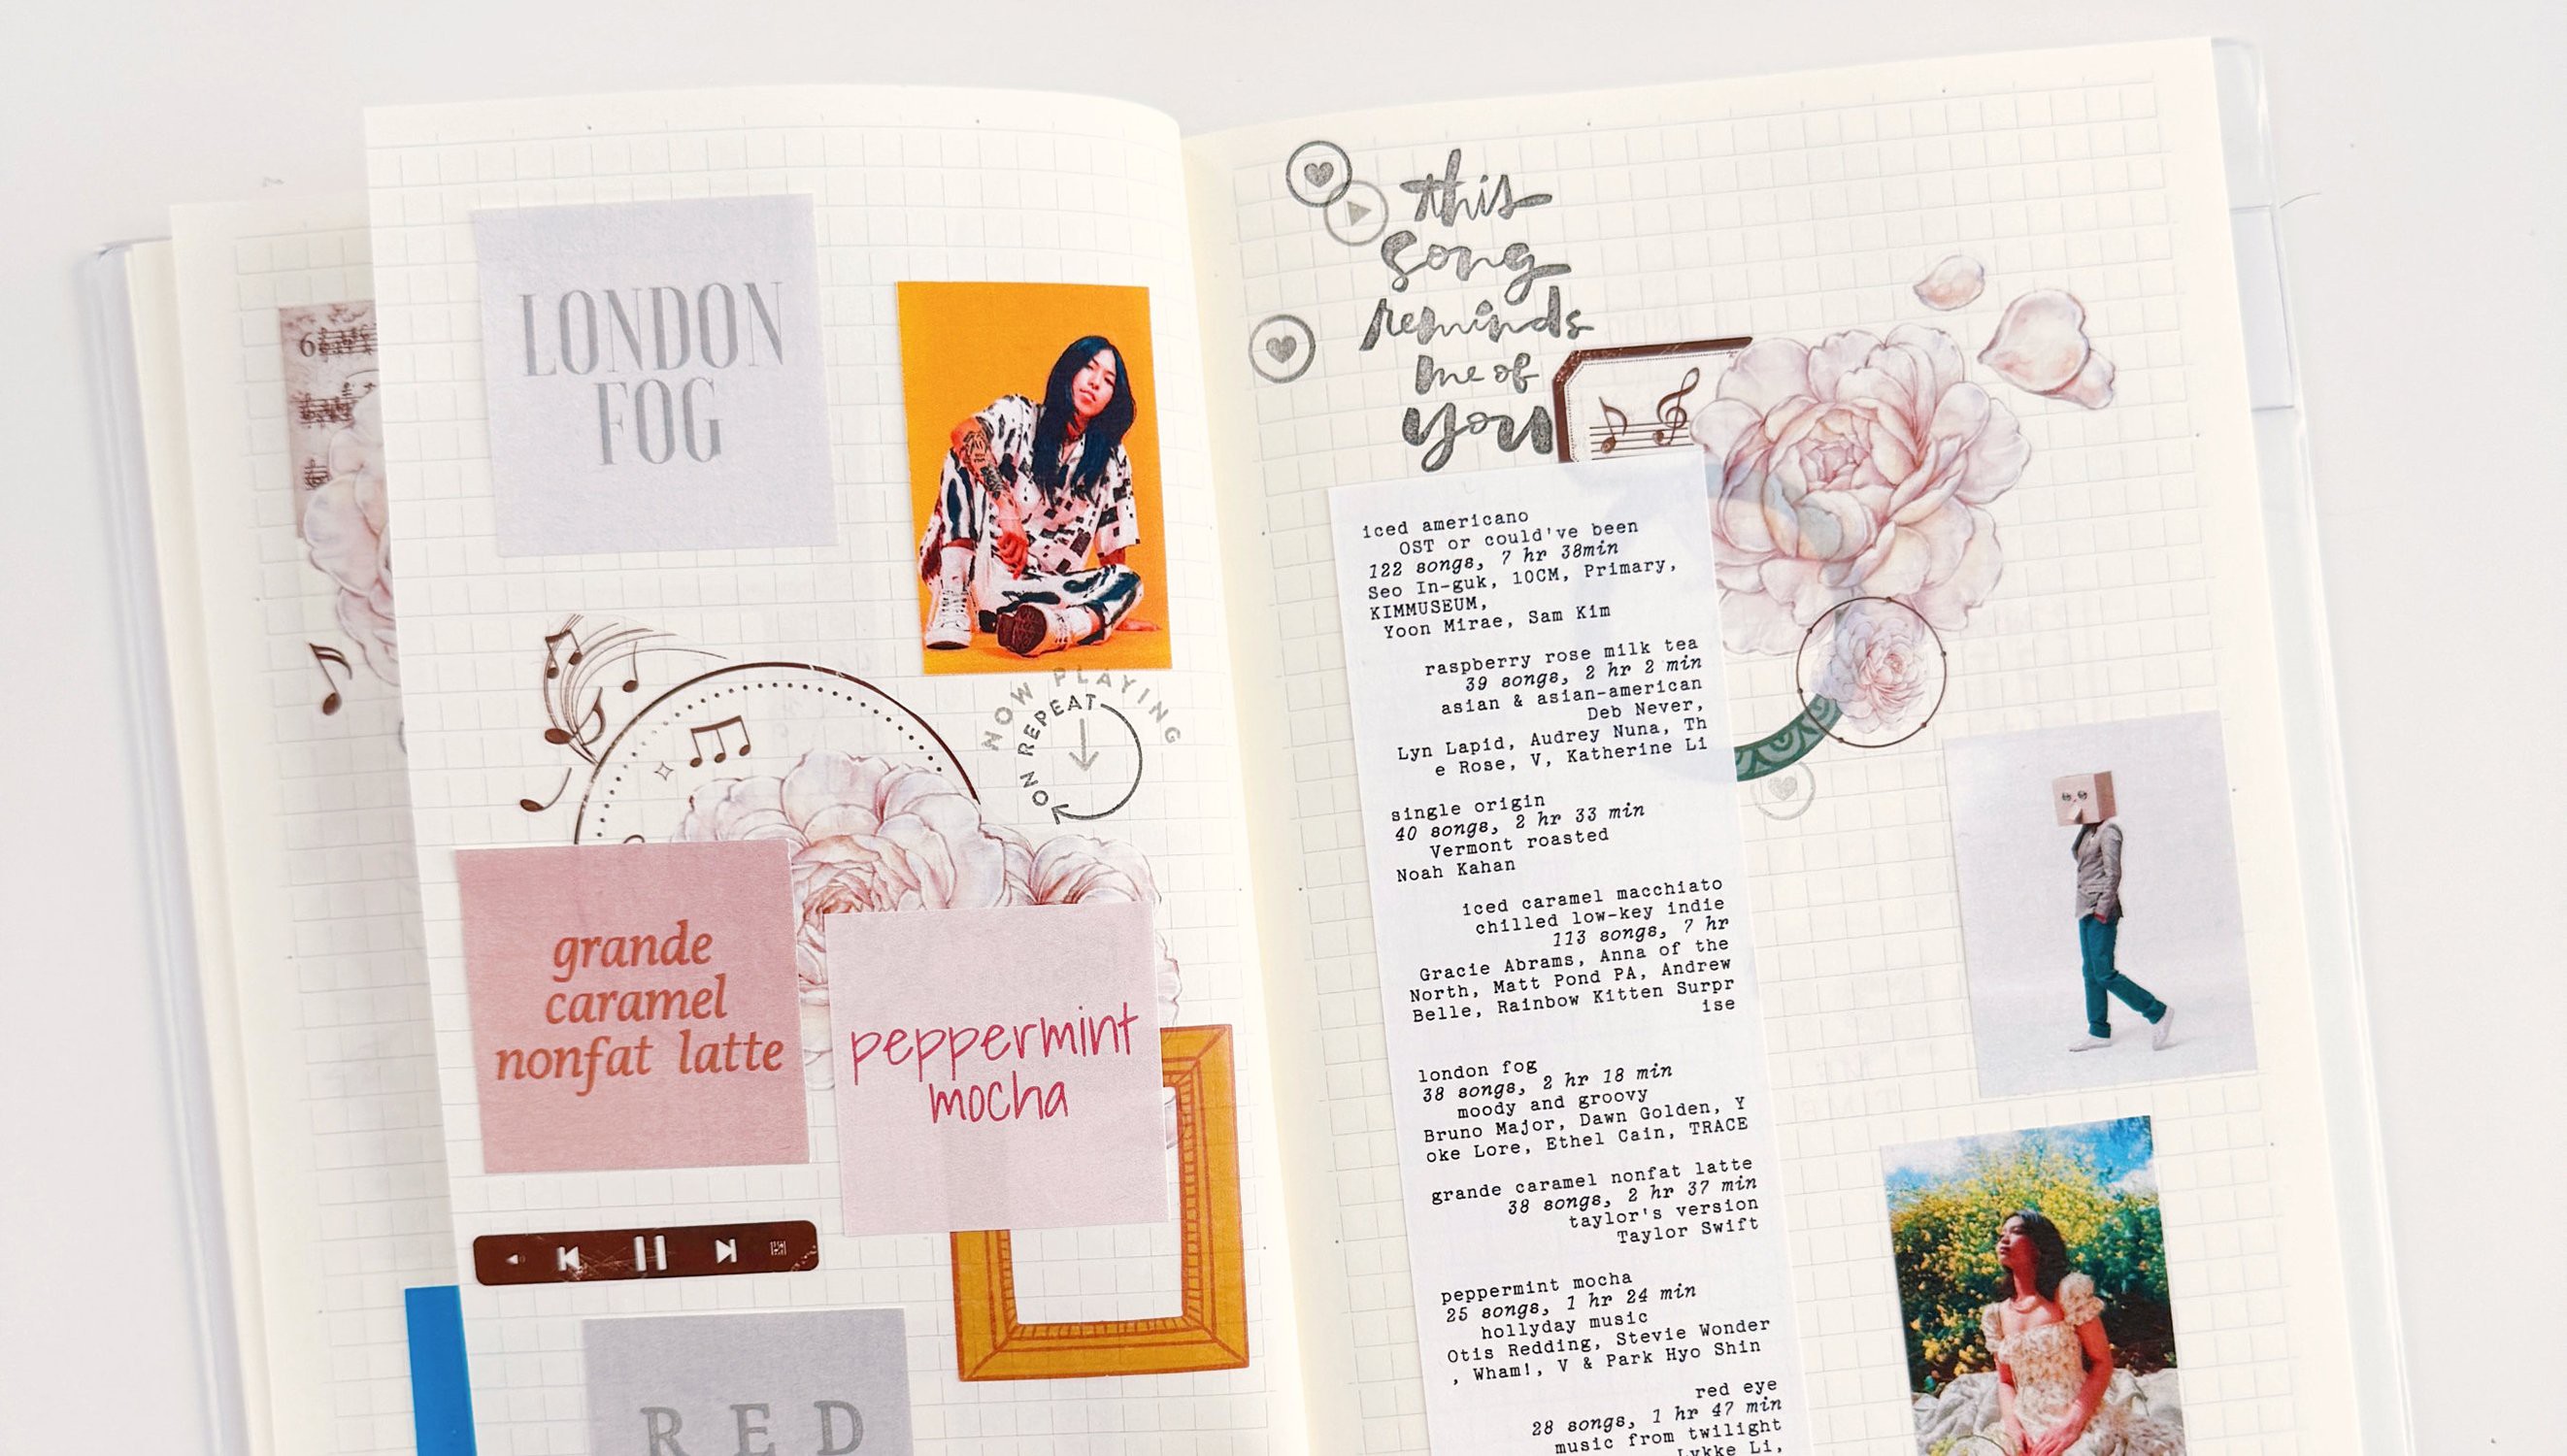 6
LONDON
FOG
NOW PLAYING
ON REPEAT
grande
caramel
nonfat latte
peppermint
mocha
RED
this
song
reminds
me of
you
iced americano
OST or could've been
122 songs, 7 hr 38min
Seo In-guk, 10CM, Primary,
KIMMUSEUM,
Yoon Mirae, Sam Kim
raspberry rose milk tea
39 songs, 2 hr 2 min
asian & asian-american
Deb Never,
Lyn Lapid, Audrey Nuna, Th
e Rose, V, Katherine Li
single origin
40 songs, 2 hr 33 min
Vermont roasted
Noah Kahan
iced caramel macchiato
chilled low-key indie
113 songs, 7 hr
Gracie Abrams, Anna of the
North, Matt Pond PA, Andrew
Belle, Rainbow Kitten Surpr
ise
london fog
38 songs, 2 hr 18 min
moody and groovy
Bruno Major, Dawn Golden, Y
oke Lore, Ethel Cain, TRACE
grande caramel nonfat latte
38 songs, 2 hr 37 min
taylor's version
Taylor Swift
peppermint mocha
25 songs, 1 hr 24 min
hollyday music
Otis Redding, Stevie Wonder
, Wham!, V & Park Hyo Shin
red eye
28 songs, 1 hr 47 min
music from twilight
Lykke Li,